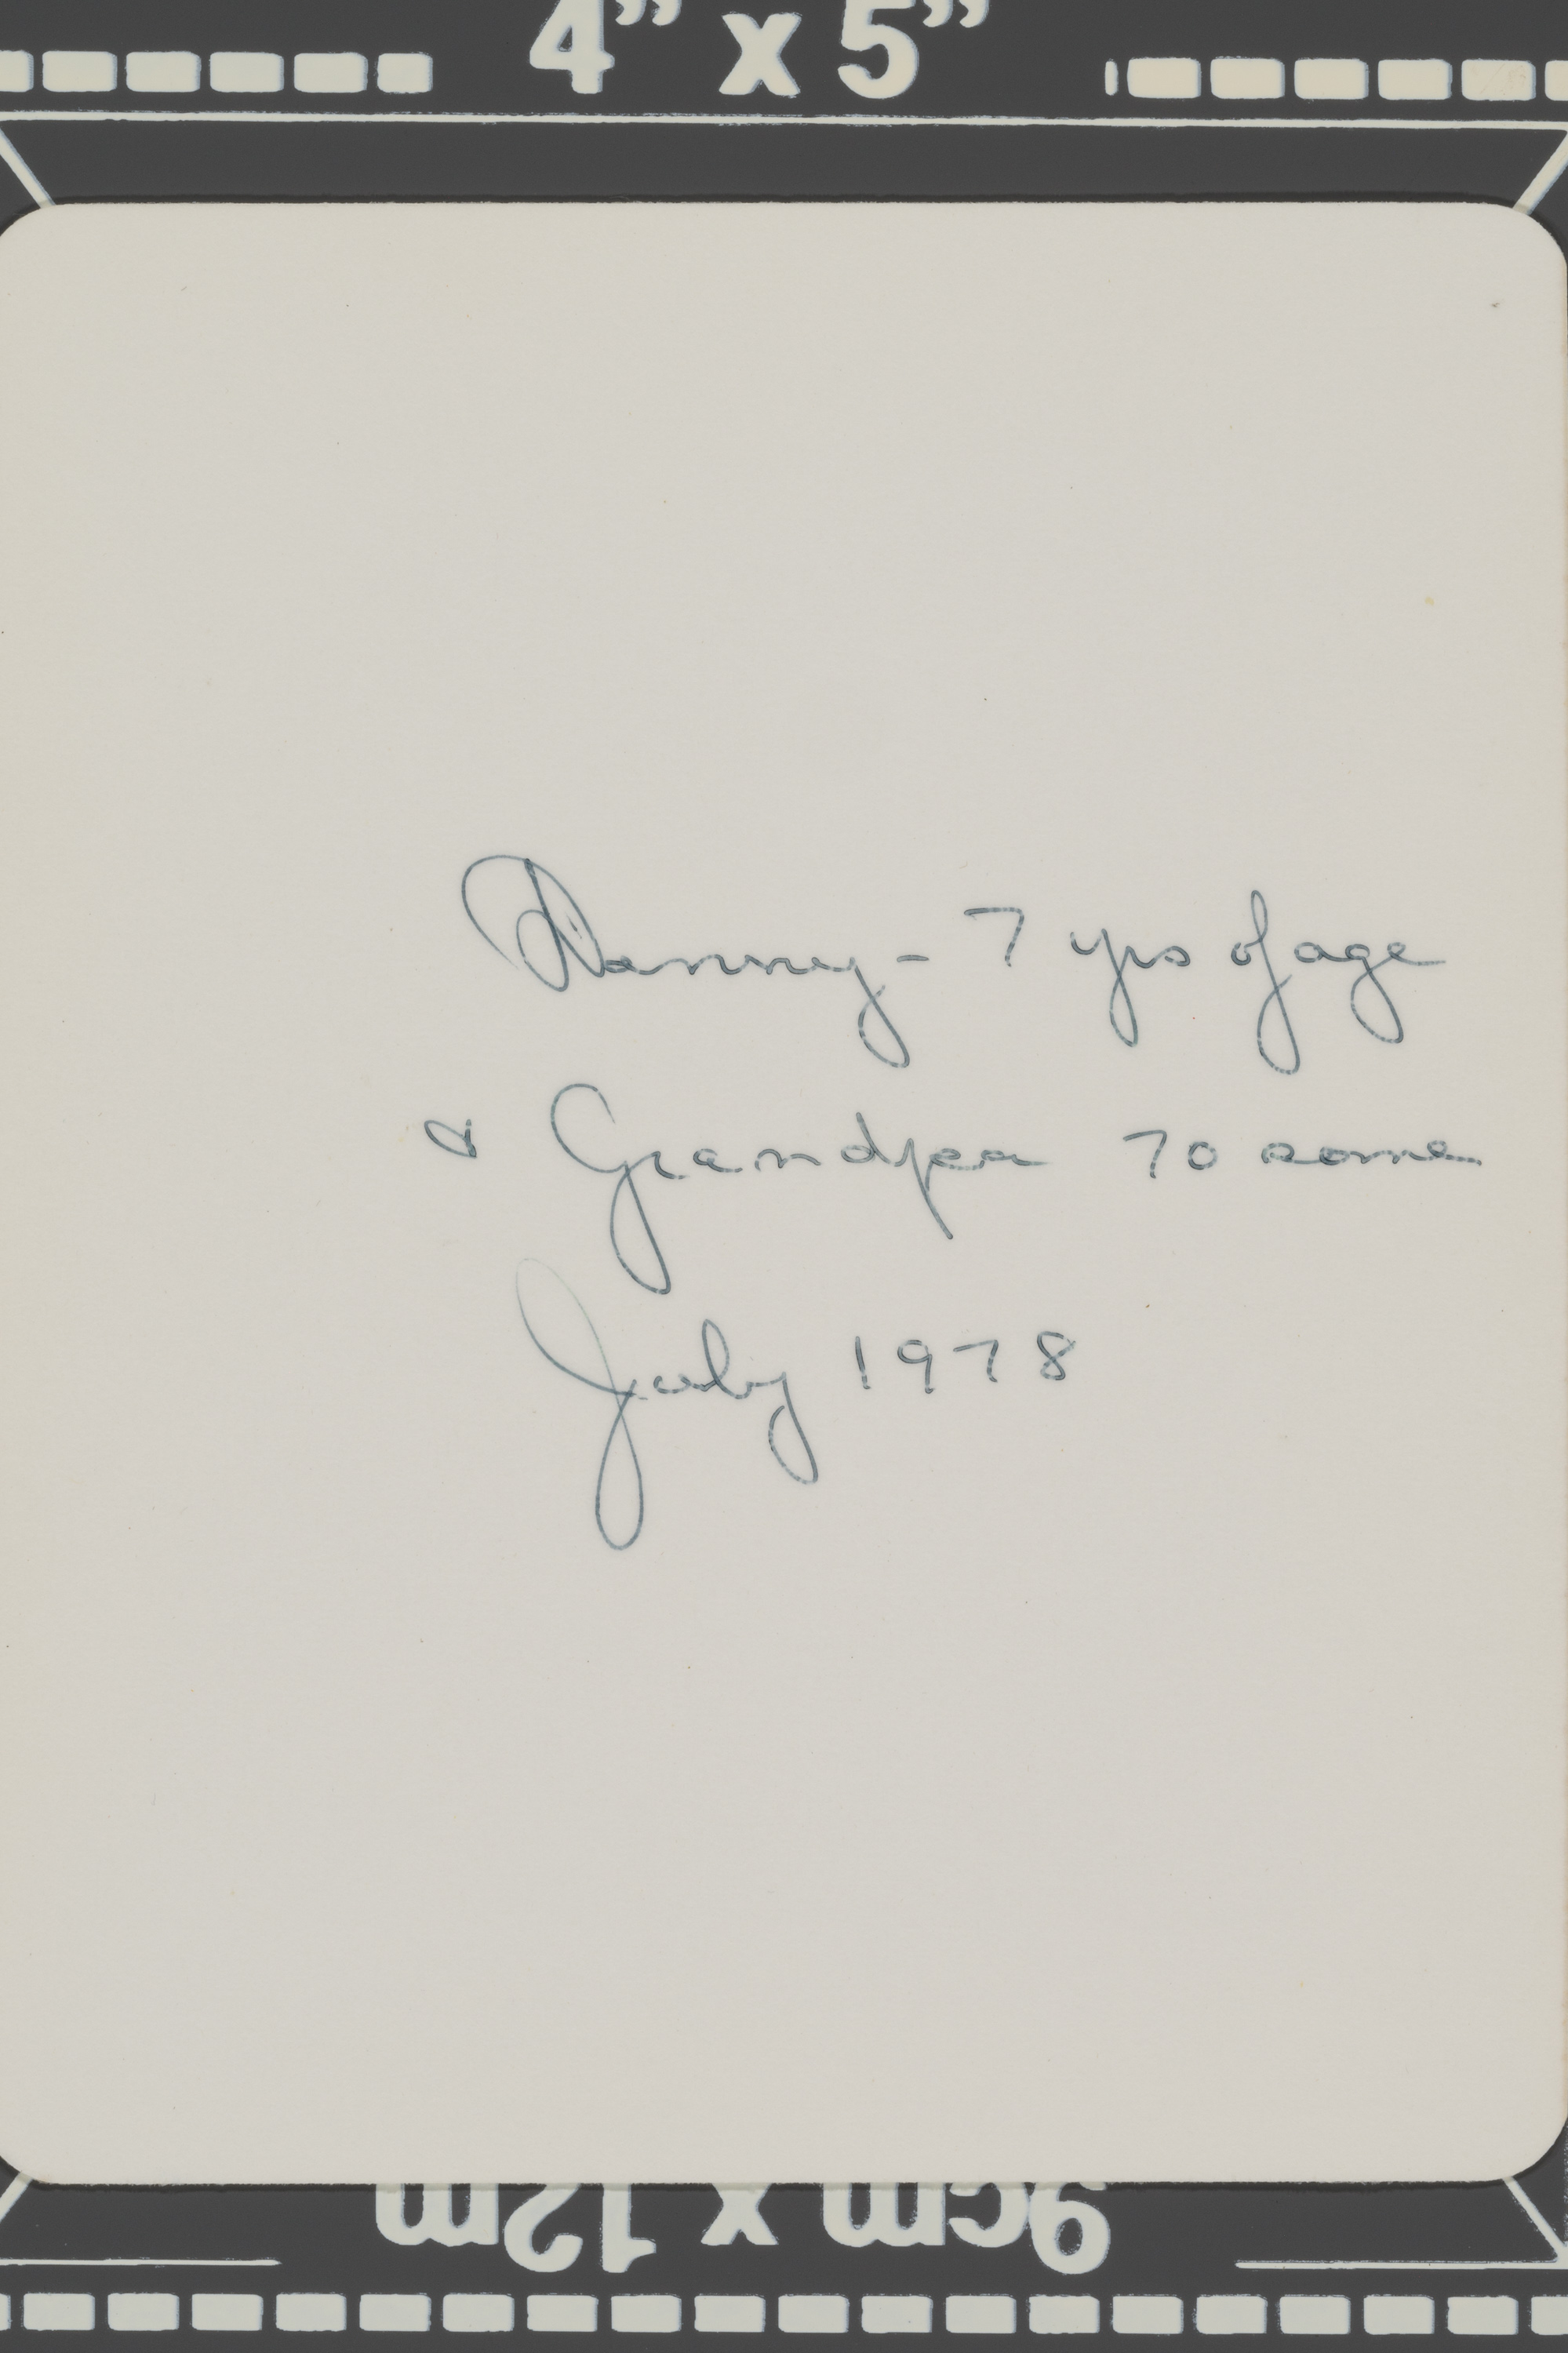 4” x 5”
Danny - 7 yrs of age
& Grandpa 70 some
July 1978
9cm x 12m